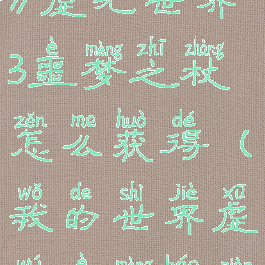 虚无世界
è mèng zhī zhàng
3噩梦之杖
zěn me huò dé
怎么获得(
wǒ de shì jiè xū
我的世界虚